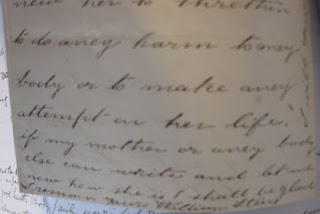 new her to threthen
to do aney harm to aney
body or to make aney
attempt on her life.
if my mother or aney body
else can write and let me
now how she is I shall be glad
yours William